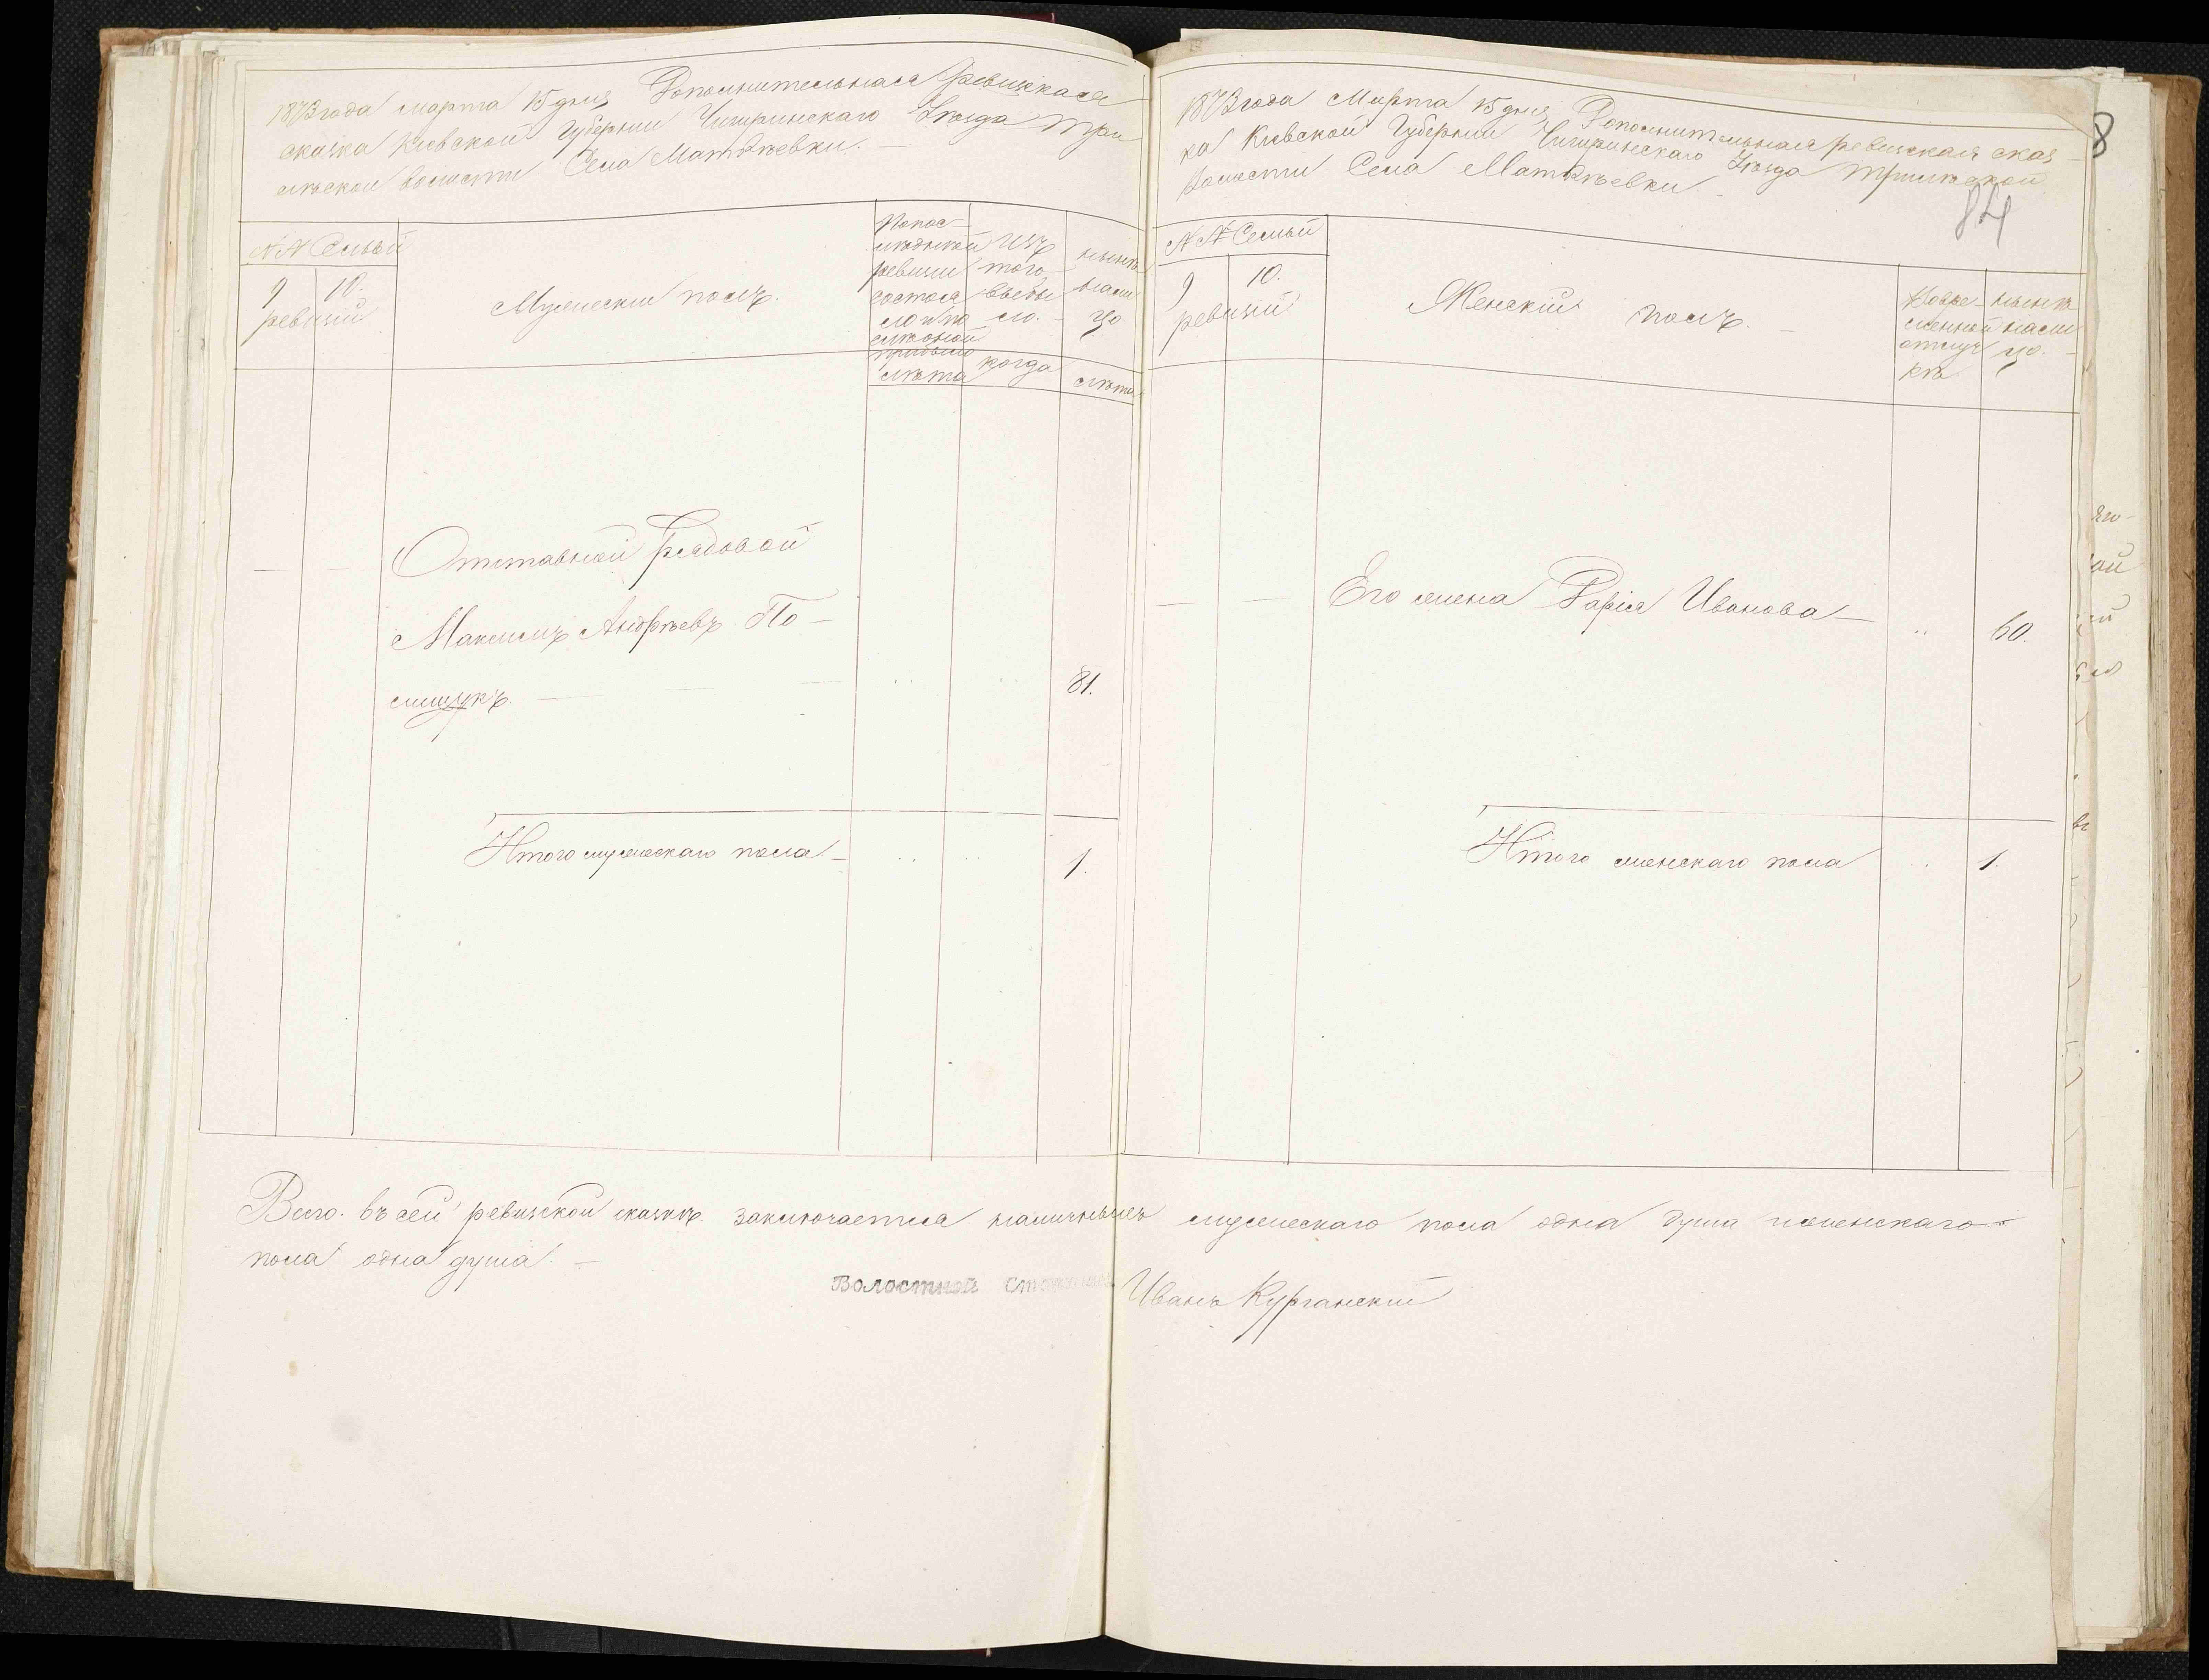 1873 года марта 15 дня Дополнительная ревизская
сказка Кіевской Губерніи Чигиринскаго Уѣзда Три
лѣской волости Села Матвѣевки. —
№№ Семьй
9 10.
ревизій
Мужескій полъ.
По пос-
лѣдней
ревизіи
состоя
ло и по
оной
прибыло
лѣта
изъ
того
выбы
ло. —
когда
нынѣ
нали
цо.
лѣта
— — Отставной рядовой
Максимъ Андрѣевъ По-
лищукъ. — — — .. .. 81.
Итого мужескаго пола — .. .. 1.
1873 года Марта 15 дня Дополнительная ревизская сказ-
ка Кіевской Губерніи Чигиринскаго Уѣзда Трилѣской
Волости Села Матвѣевки —
8
84
№№ Семьй
9 10.
ревизій
Женскій полъ. —
Во вре-
менной
отлуч
кѣ
нынѣ
нали
цо. —
— — Его жена Дарія Иванова — .. 60.
Итого женскаго пола .. 1.
Всего въ сей ревизской сказкѣ заключается наличныхъ мужескаго пола одна душа и женскаго
пола одна душа. —
Волостной Иванъ Курганскій